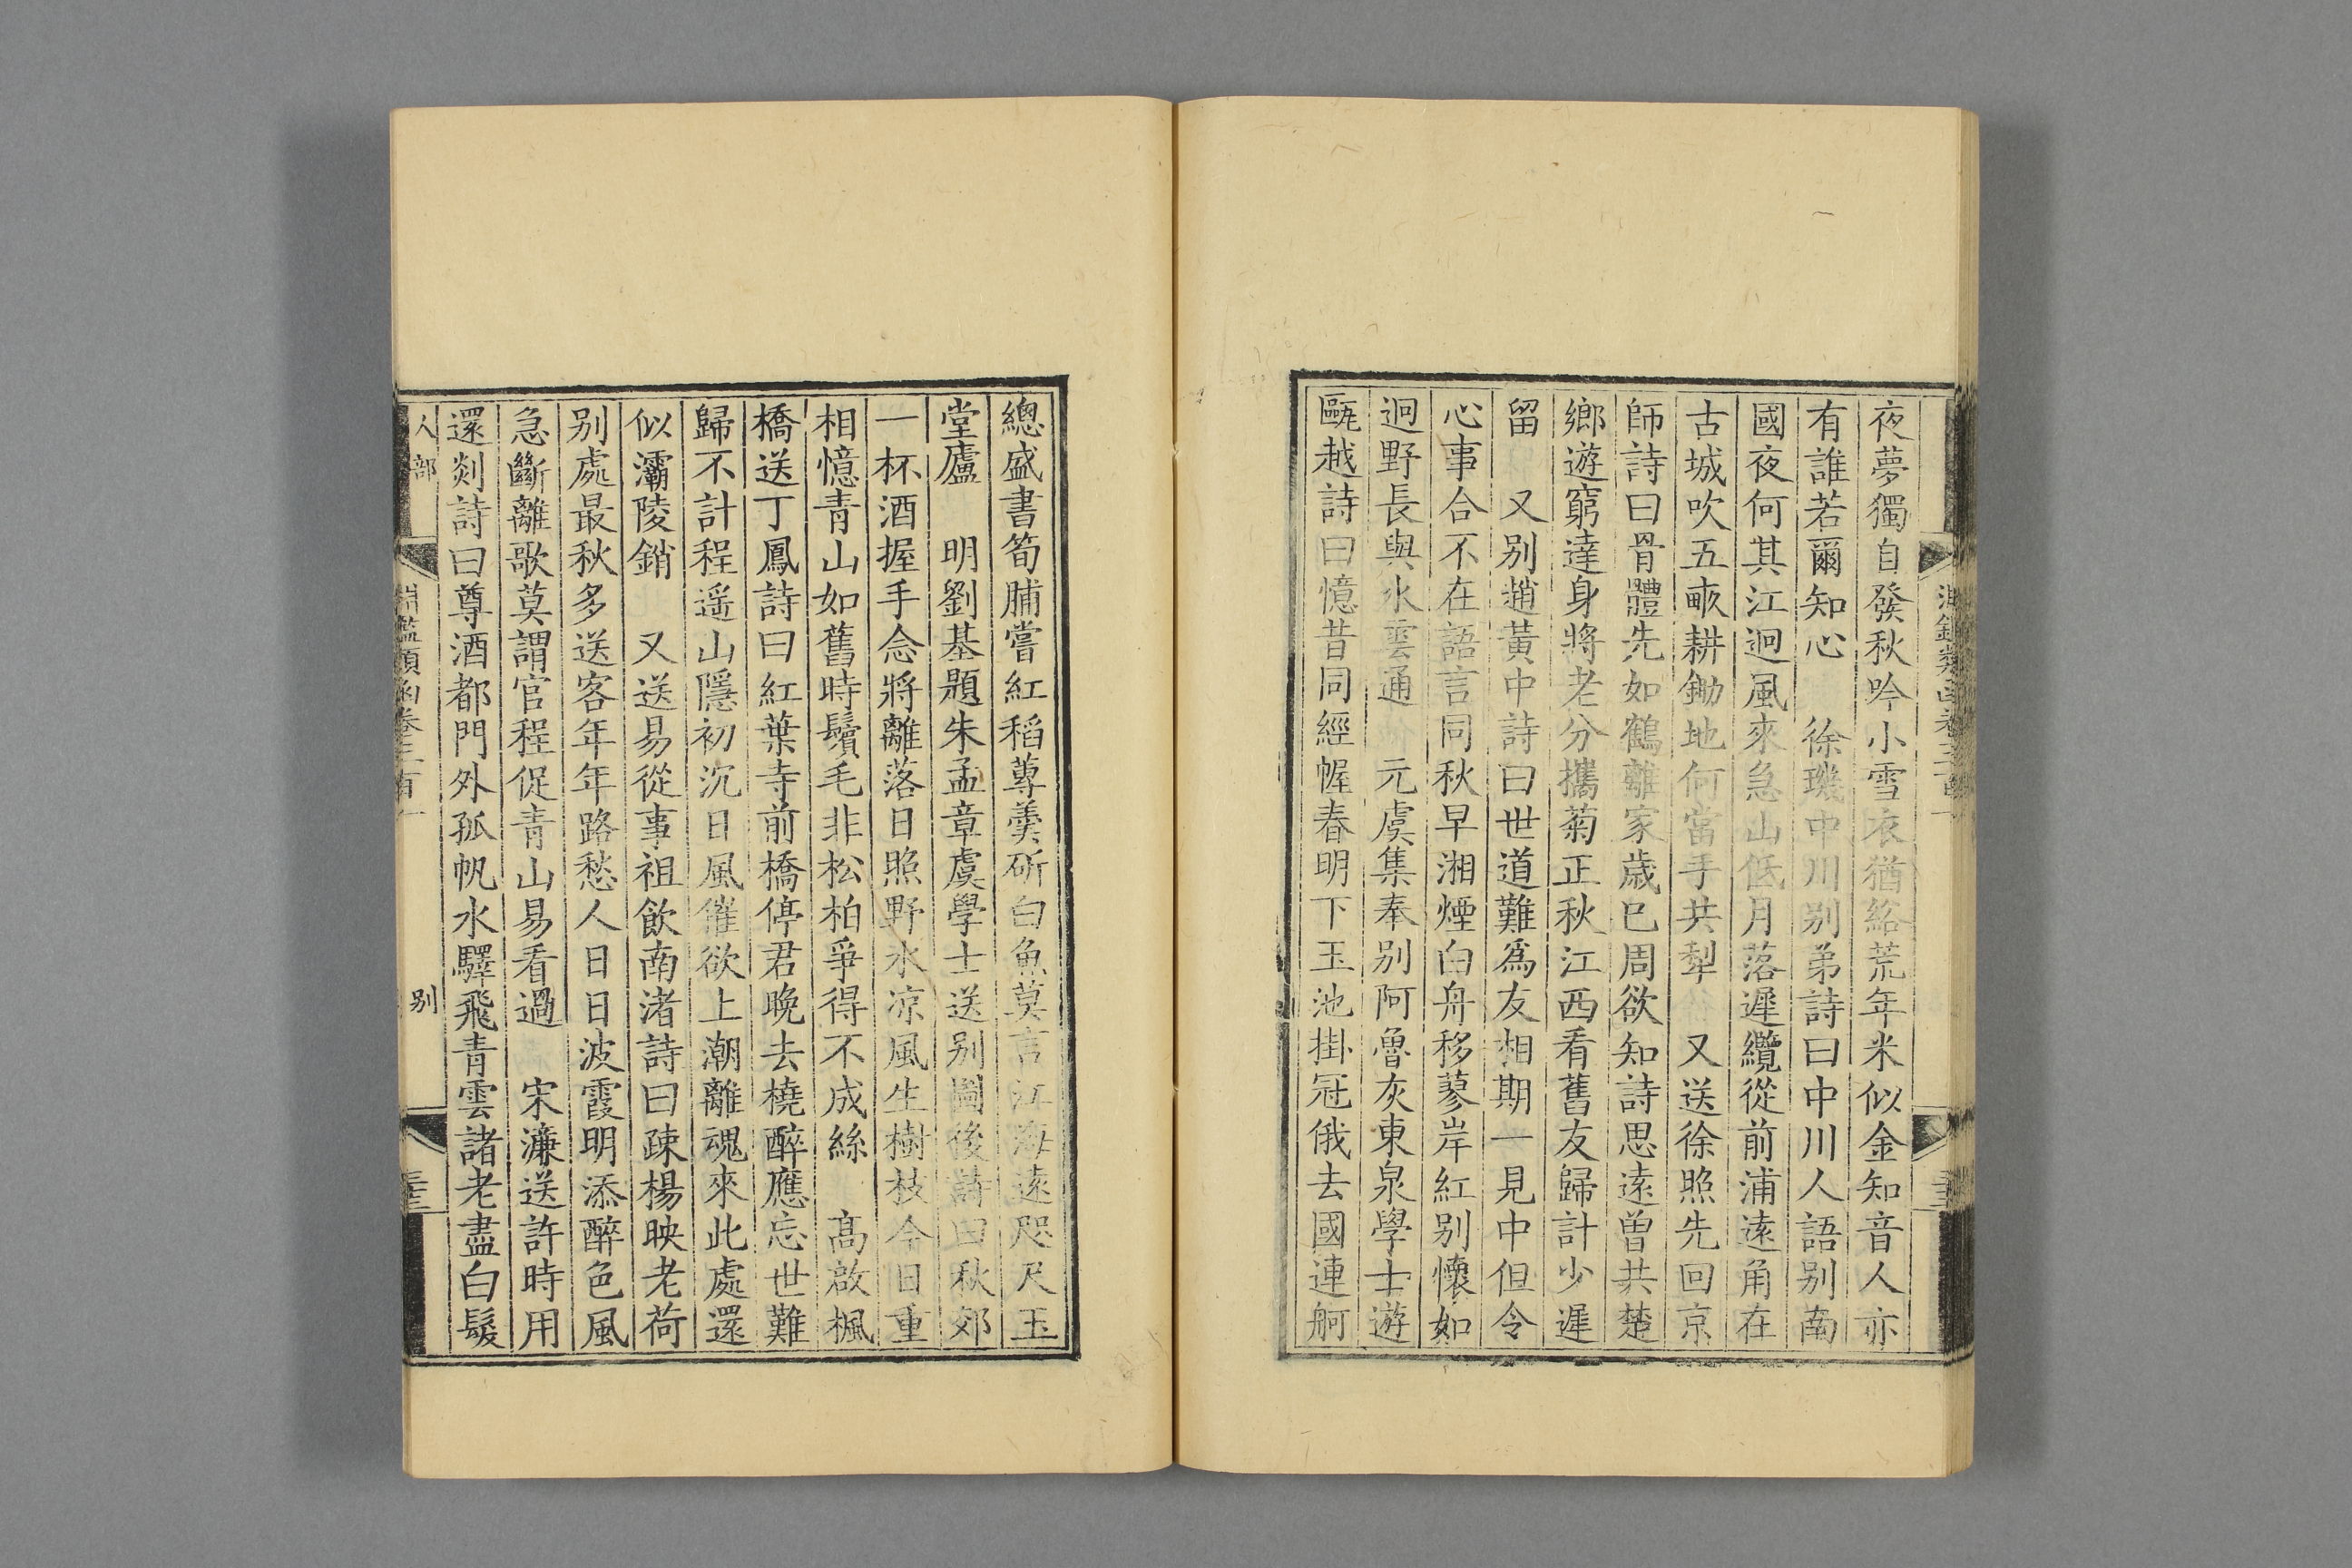 夜夢獨自發秋吟小雪衣猶綌荒年米似金知音人亦
有誰若爾知心　徐璣中川别弟詩曰中川人語别南
國夜何其江迥風來急山低月落遲纜從前浦遠角在
古城吹五畝耕鋤地何當手共犁　又送徐照先回京
師詩曰骨體先如鶴離家歲已周欲知詩思遠曾共楚
鄉遊窮達身將老分攜菊正秋江西看舊友歸計少遲
留　又别趙黃中詩曰世道難爲友相期一見中但令
心事合不在語言同秋早湘煙白舟移蓼岸紅别懷如
迥野長與水雲通　元虞集奉别阿魯灰東泉學士遊
甌越詩曰憶昔同經幄春明下玉池掛冠俄去國連舸
總盛書筍脯嘗紅稻蓴羮斫白魚莫言江海遠咫尺玉
堂廬　明劉基題朱孟章虞學士送别圖後詩曰秋郊
一杯酒握手念將離落日照野水凉風生樹枝今日重
相憶青山如舊時鬚毛非松柏爭得不成絲　高啟楓
橋送丁鳳詩曰紅葉寺前橋停君晚去橈醉應忘世難
歸不計程遥山隱初沉日風催欲上潮離魂來此處還
似灞陵銷　又送易從事祖飲南渚詩曰疎楊映老荷
别處最秋多送客年年路愁人日日波霞明添醉色風
急斷離歌莫謂官程促青山易看過　宋濂送許時用
還剡詩曰尊酒都門外孤帆水驛飛青雲諸老盡白髮
人部
淵鑑類函卷三百一
别